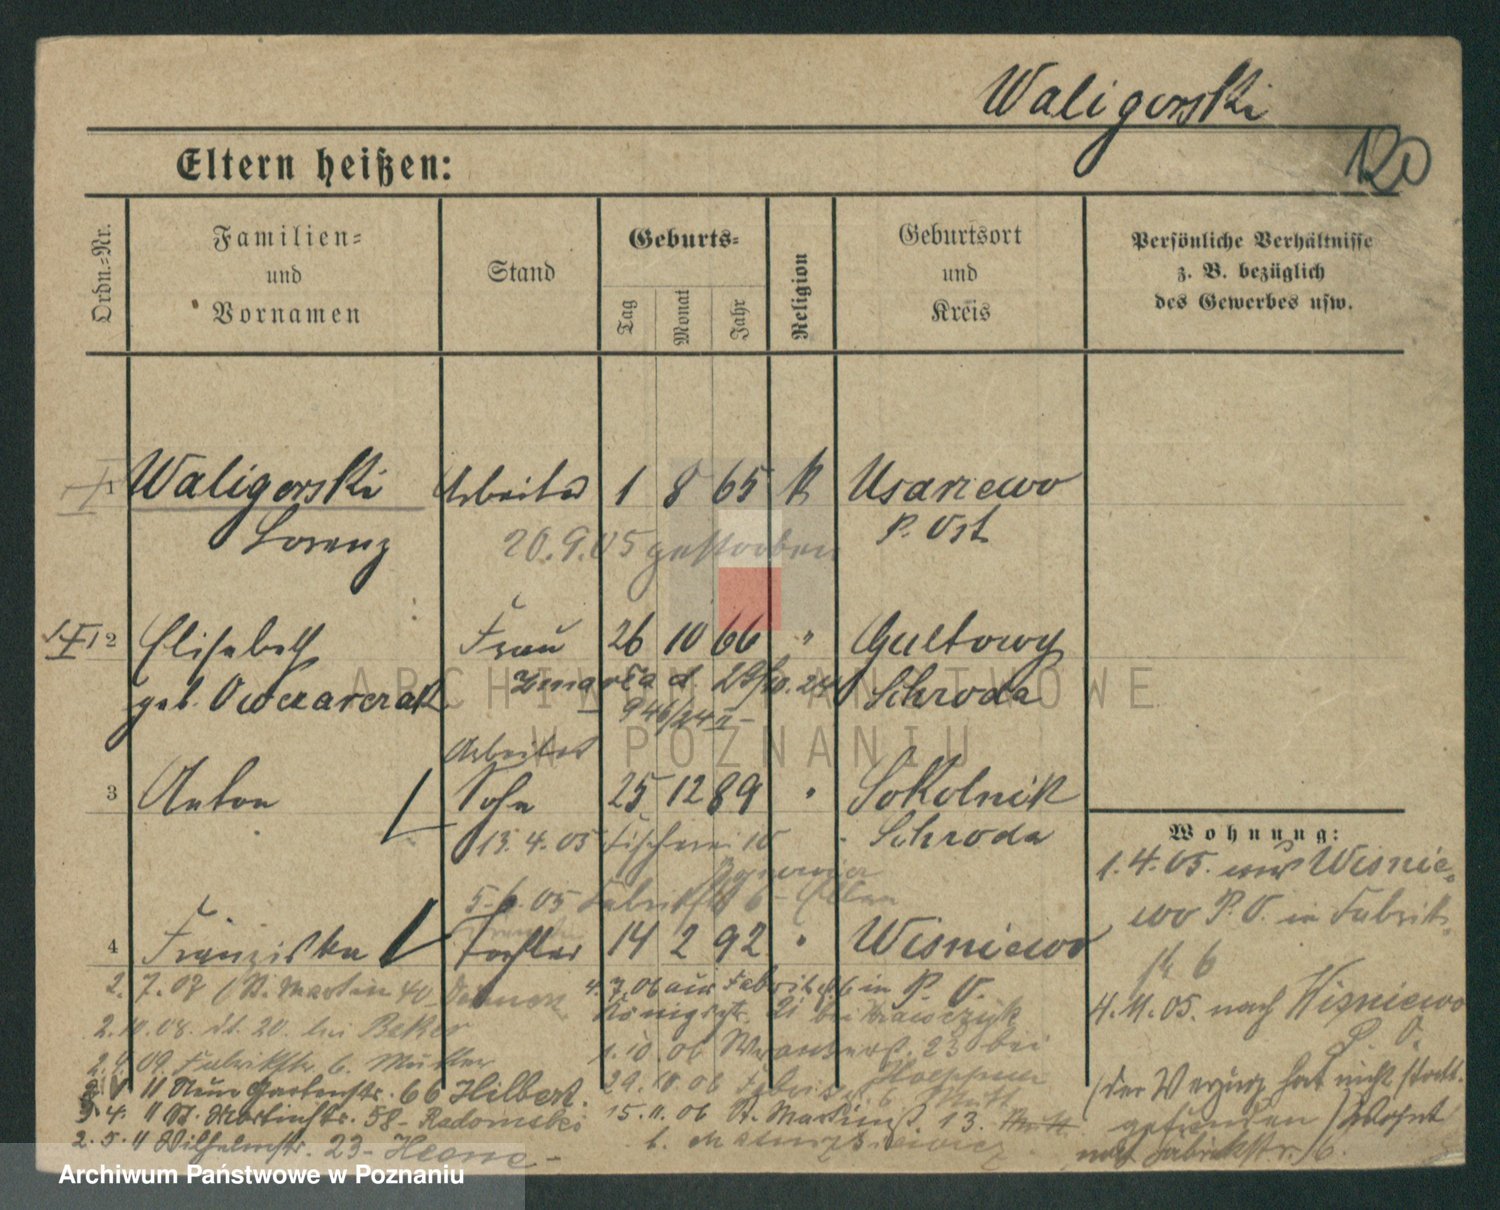 Waligorski
120
Eltern heißen:
Ordn.-Nr.
Familien- und Vornamen
Stand
Geburts-
Tag
Monat
Jahr
Religion
Geburtsort und Kreis
Persönliche Verhältnisse
z. B. bezüglich
des Gewerbes usw.
1 Waligorski Arbeiter 1 8 65 k Usarzewo
Lorenz P. Ost
20.9.05 gestorben
2 Elisabeth Frau 26 10 66 " Gultowy
geb. Owczarczak Zmarła d. 29/10. 24 Schroda
946/24
Arbeiter
3 Anton Sohn 25 12 89 " Sokolnik
Schroda
13.4.05 Fischerei 10
5.6.05 Fabrikstr 6
4 Franziska Tochter 14 2 92 " Wisniewo
Wohnung:
1.4.05. aus Wisnie-
wo P. O. in Fabrik-
str 6
4.11.05. nach Wisniewo
P. O.
(der Verzug hat nicht statt-
gefunden) wohnt
Fabrikstr. 6.
2.7.07 St. Martin 40
2.10.08. 20. bei Beker
09. Fabrikstr. 6. Mutter
11 Neue Gartenstr. 66 Hilbert.
4. 11 St. Martinstr. 58- Radomski
2.5.11 Wilhelmstr. 23-
4.7.06 aus Fabrikstr 6 in P. O.
Königstr. 21 bei Krawczyk
1.10.06 23 bei
29.10.06 Fabrikstr. 6 Mutt
15.11.06 St. Martinst. 13.
ARCHIWUM PAŃSTWOWE
W POZNANIU
Archiwum Państwowe w Poznaniu